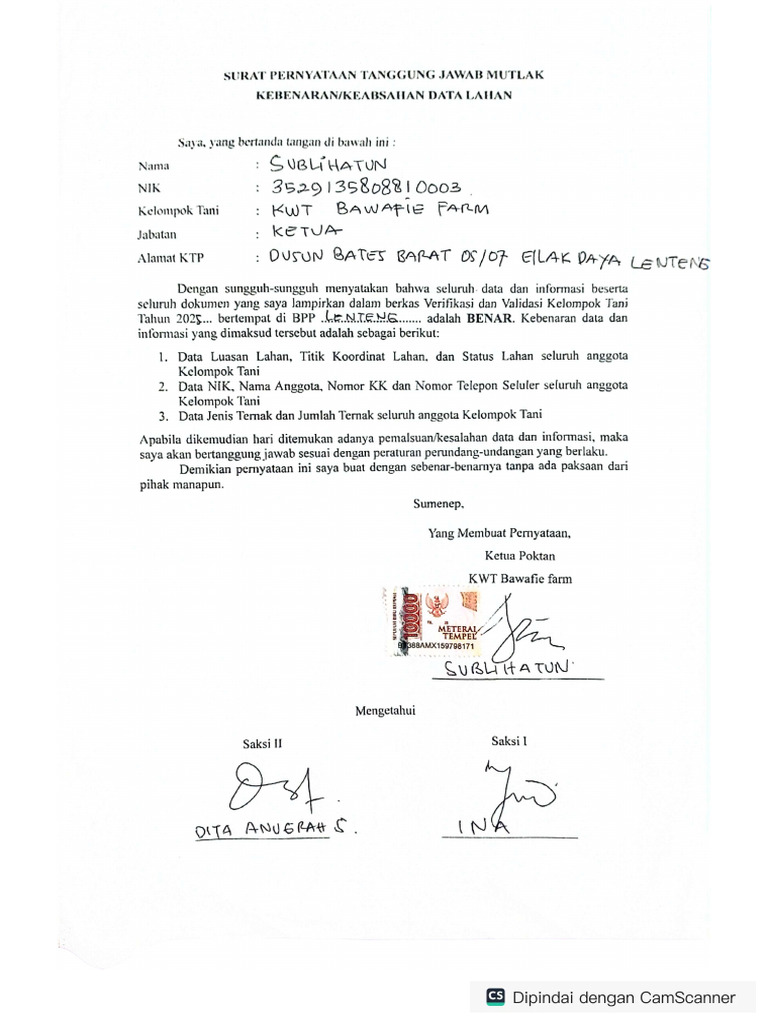 SURAT PERNYATAAN TANGGUNG JAWAB MUTLAK
KEBENARAN/KEABSAHAN DATA LAHAN
Saya, yang bertanda tangan di bawah ini :
Nama : SUBLIHATUN
NIK : 3529135808810003
Kelompok Tani : KWT BAWAFIE FARM
Jabatan : KETUA
Alamat KTP : DUSUN BATES BARAT 05/07 ELLAK DAYA LENTENG
Dengan sungguh-sungguh menyatakan bahwa seluruh data dan informasi beserta
seluruh dokumen yang saya lampirkan dalam berkas Verifikasi dan Validasi Kelompok Tani
Tahun 2025... bertempat di BPP .LENTENG....... adalah BENAR. Kebenaran data dan
informasi yang dimaksud tersebut adalah sebagai berikut:
1. Data Luasan Lahan, Titik Koordinat Lahan, dan Status Lahan seluruh anggota
Kelompok Tani
2. Data NIK, Nama Anggota, Nomor KK dan Nomor Telepon Seluler seluruh anggota
Kelompok Tani
3. Data Jenis Ternak dan Jumlah Ternak seluruh anggota Kelompok Tani
Apabila dikemudian hari ditemukan adanya pemalsuan/kesalahan data dan informasi, maka
saya akan bertanggung jawab sesuai dengan peraturan perundang-undangan yang berlaku.
Demikian pernyataan ini saya buat dengan sebenar-benarnya tanpa ada paksaan dari
pihak manapun.
Sumenep,
Yang Membuat Pernyataan,
Ketua Poktan
KWT Bawafie farm
10000
METERAI
TEMPEL
388AMX159798171
SUBLIHATUN
Mengetahui
Saksi II Saksi I
DITA ANUGRAH S. INA
CS Dipindai dengan CamScanner